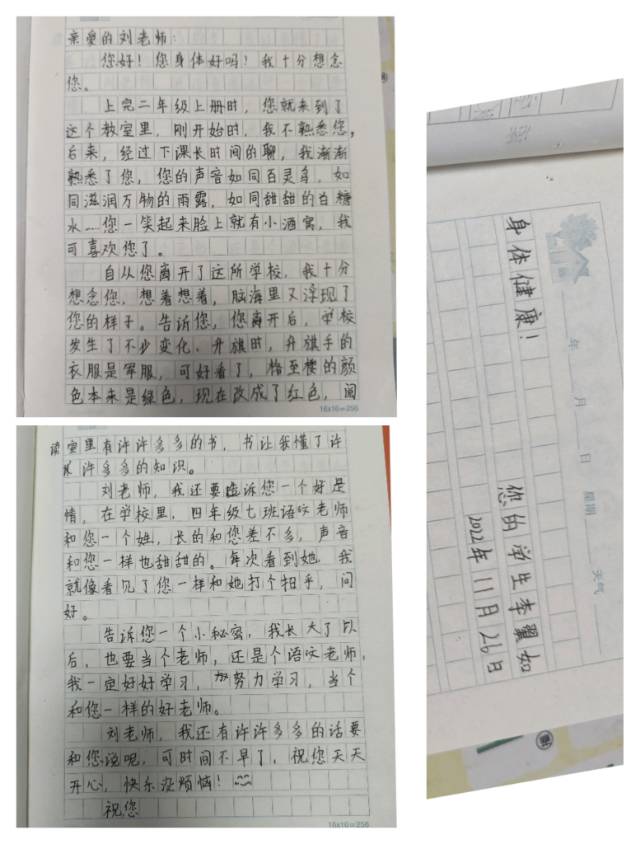 亲爱的刘老师:
您好!您身体好吗!我十分想念
您。
上完二年级上册时,您就来到了
这个教室里,刚开始时,我不熟悉您,
后来,经过下课长时间的聊,我渐渐
熟悉了您,您的声音如同百灵鸟,如
同滋润万物的雨露,如同甜甜的白糖
水……您一笑起来脸上就有小酒窝,我
可喜欢您了。
自从您离开了这所学校,我十分
想念您,想着想着,脑海里又浮现了
您的样子。告诉您,您离开后,学校
发生了不少变化,升旗时,升旗手的
衣服是军服,可好看了,格至楼的颜
色本来是绿色,现在改成了红色,阅
16x16=256
读室里有许许多多的书,书让我懂了许
许多多的知识。
刘老师,我还要告诉您一个好是
情,在学校里,四年级七班语文老师
和您一个姓,长的和您差不多,声音
和您一样也甜甜的。每次看到她,我
就像看见了您一样和她打个招乎,问
好。
告诉您一个小秘密,我长大了以
后,也要当个老师,还是个语文老师,
我一定好好学习,努力学习,当个
和您一样的好老师。
刘老师,我还有许许多多的话要
和您说呢,可时间不早了,祝您天天
开心,快乐没烦恼!
祝您
16x16=256
年 月 日 星期 天气
身体健康!
您的学生李翼如
2022年11月26日